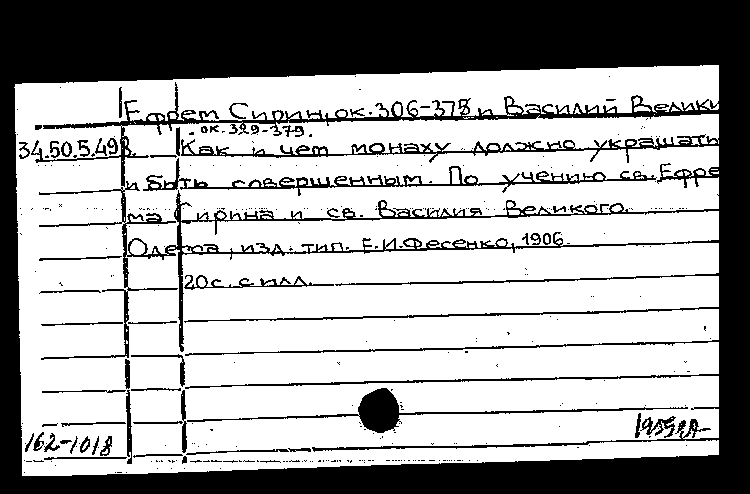 Ефрем Сирин, ок. 306-378 и Василий Велики
ок. 329-379.
34.50.5.498. Как и чем монаху должно украшать
и быть совершенным. По учению св. Ефре
ма Сирина и св. Василия Великого.
Одесса, изд. тип. Е.И.Фесенко, 1906.
20с. с илл.
162-1018